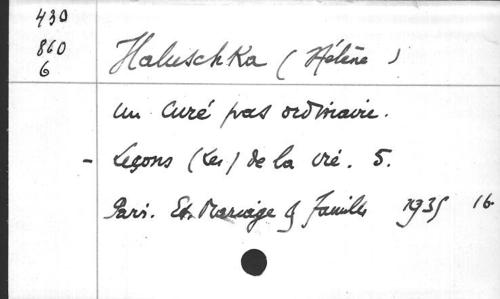 430
860
6
Haluschka (Hélène)
Un Curé pas ordinaire.
- Leçons (Les) de la vie. 5.
Paris. Ed. Mariage & Famille 1935 16